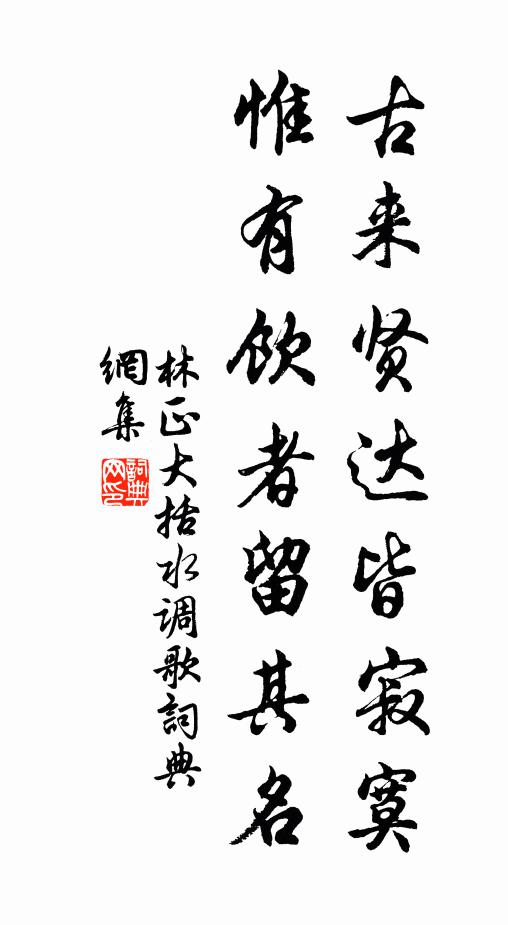 古来贤达皆寂寞
惟有饮者留其名
林正大括水调歌詞典
網集
詞典網印